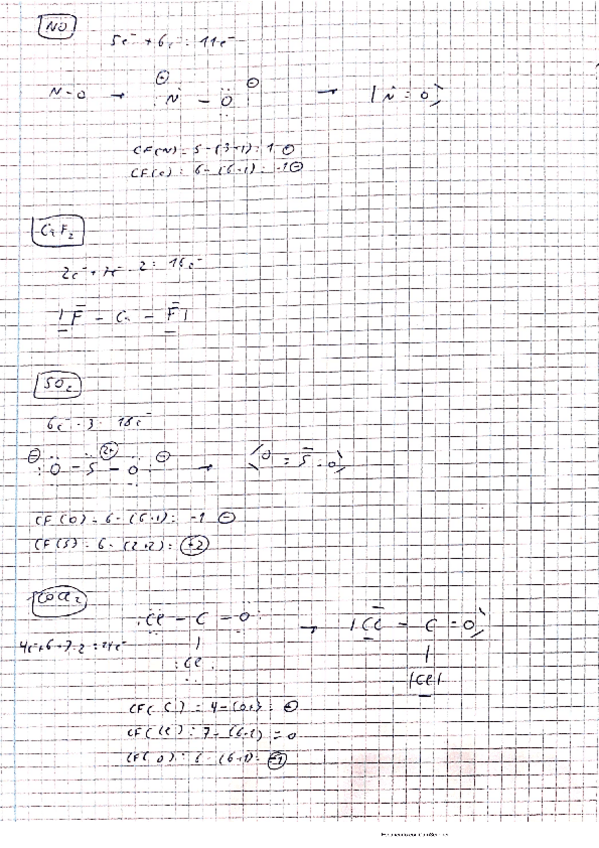 NO
5e⁻ + 6e⁻ : 11e⁻
N-O → N - O → |N = O
CF(N) = 5 - (3+1) : 1
CF(O) : 6 - (6+1) : -1
F₂
2e⁻ + 7e⁻ · 2 = 16e⁻
|F - - F|
SO₂
6e⁻ · 3 = 18e⁻
O - S - O → O = S = O
CF(O) = 6 - (6+1) : -1
CF(S) = 6 - (2+2) : +2
COCl₂
:Cl - C - O: → |Cl - C = O
4e⁻ + 6 + 7·2 = 24e⁻
:Cl: |Cl|
CF(C) = 4 -
CF(Cl) : 7 - (6+1) = 0
CF(O) : 6 - (6+1) - -1